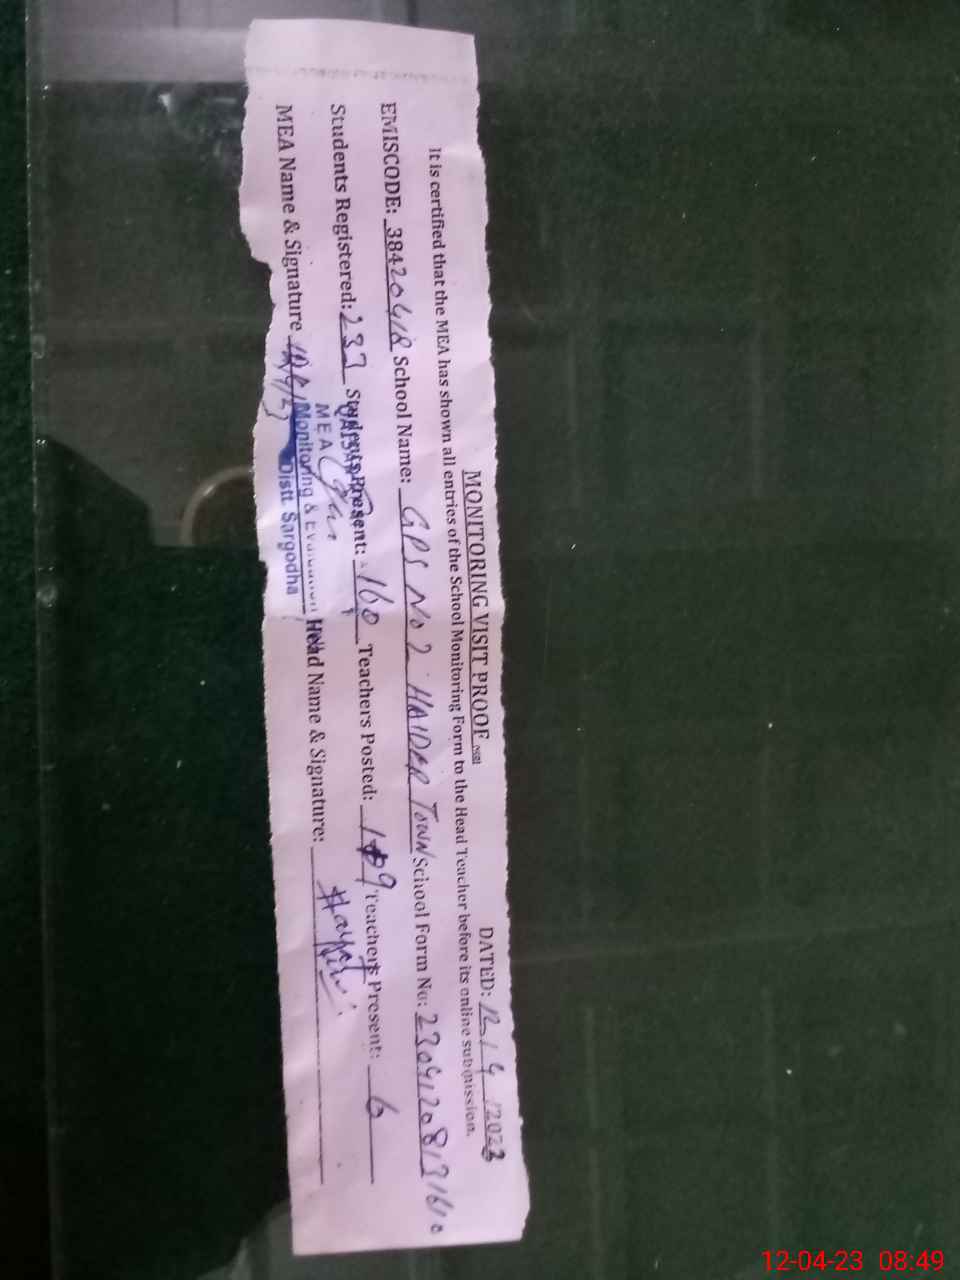 MONITORING VISIT PROOF
DATED: 12/4/2023
It is certified that the MEA has shown all entries of the School Monitoring Form to the Head Teacher before its online submission.
EMISCODE: 38420418 School Name: GPS No 2 HAIDER TOWN School Form No:
Students Registered: 233 Students Present: 160 Teachers Posted: Teachers Present: 6
MEA Name & Signature Head Name & Signature:
MEA
Monitoring & Evaluation
Distt. Sargodha
12-04-23 08:49